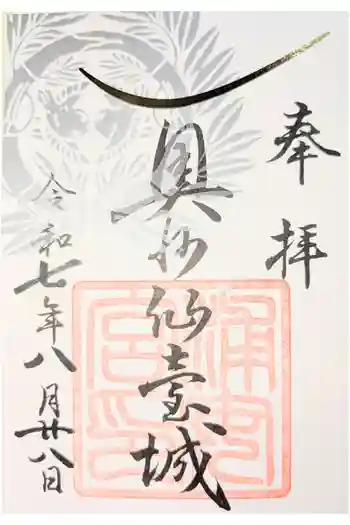 奉拝
奥州仙臺城
令和七年八月廿八日